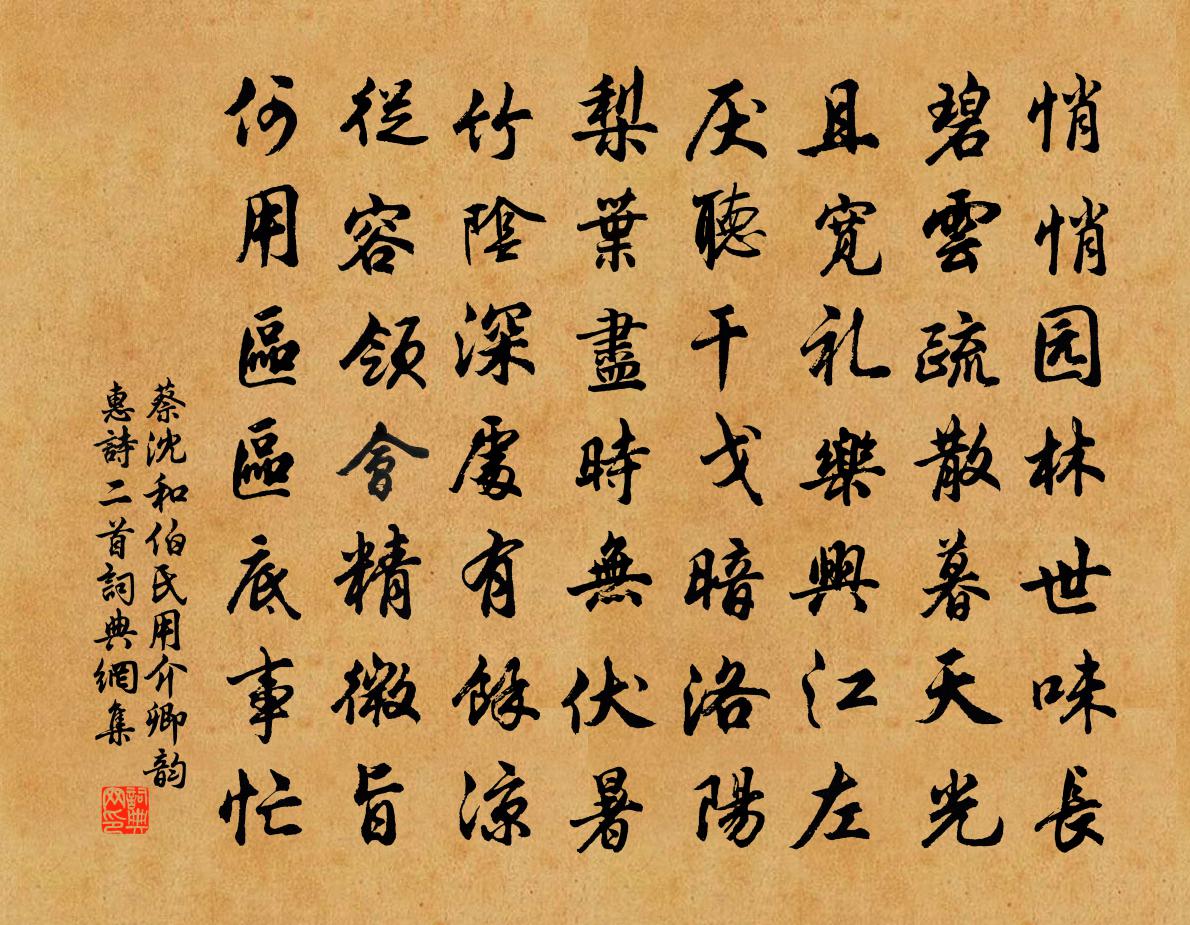 悄悄园林世味長
碧雲疏散暮天光
且寬礼樂興江左
厌聽干戈暗洛陽
梨葉盡時無伏暑
竹陰深處有餘凉
從容領會精微旨
何用區區底事忙
蔡沈和伯氏用介卿韵
惠詩二首詞典網集
詞典
网印